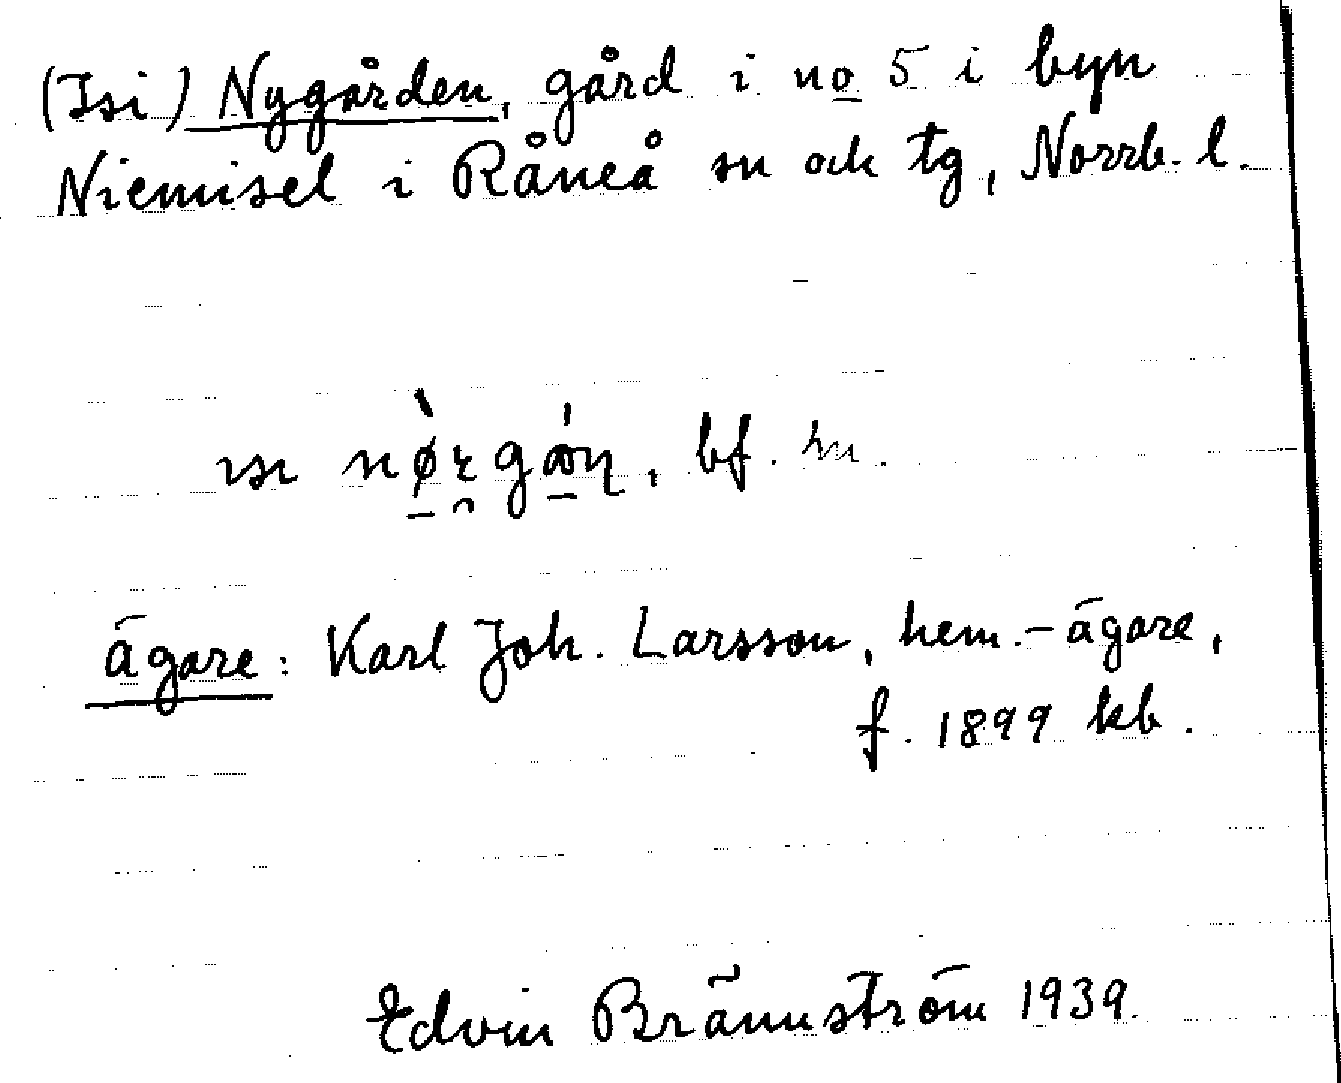 (Isi) Nygården, gård i no 5 i byn
Niemisel i Råneå sn och tg, Norrb. l.
bf. m.
ägare: Karl Joh. Larsson, hem.-ägare,
f. 1899 kb.
Edvin Brännström 1939.